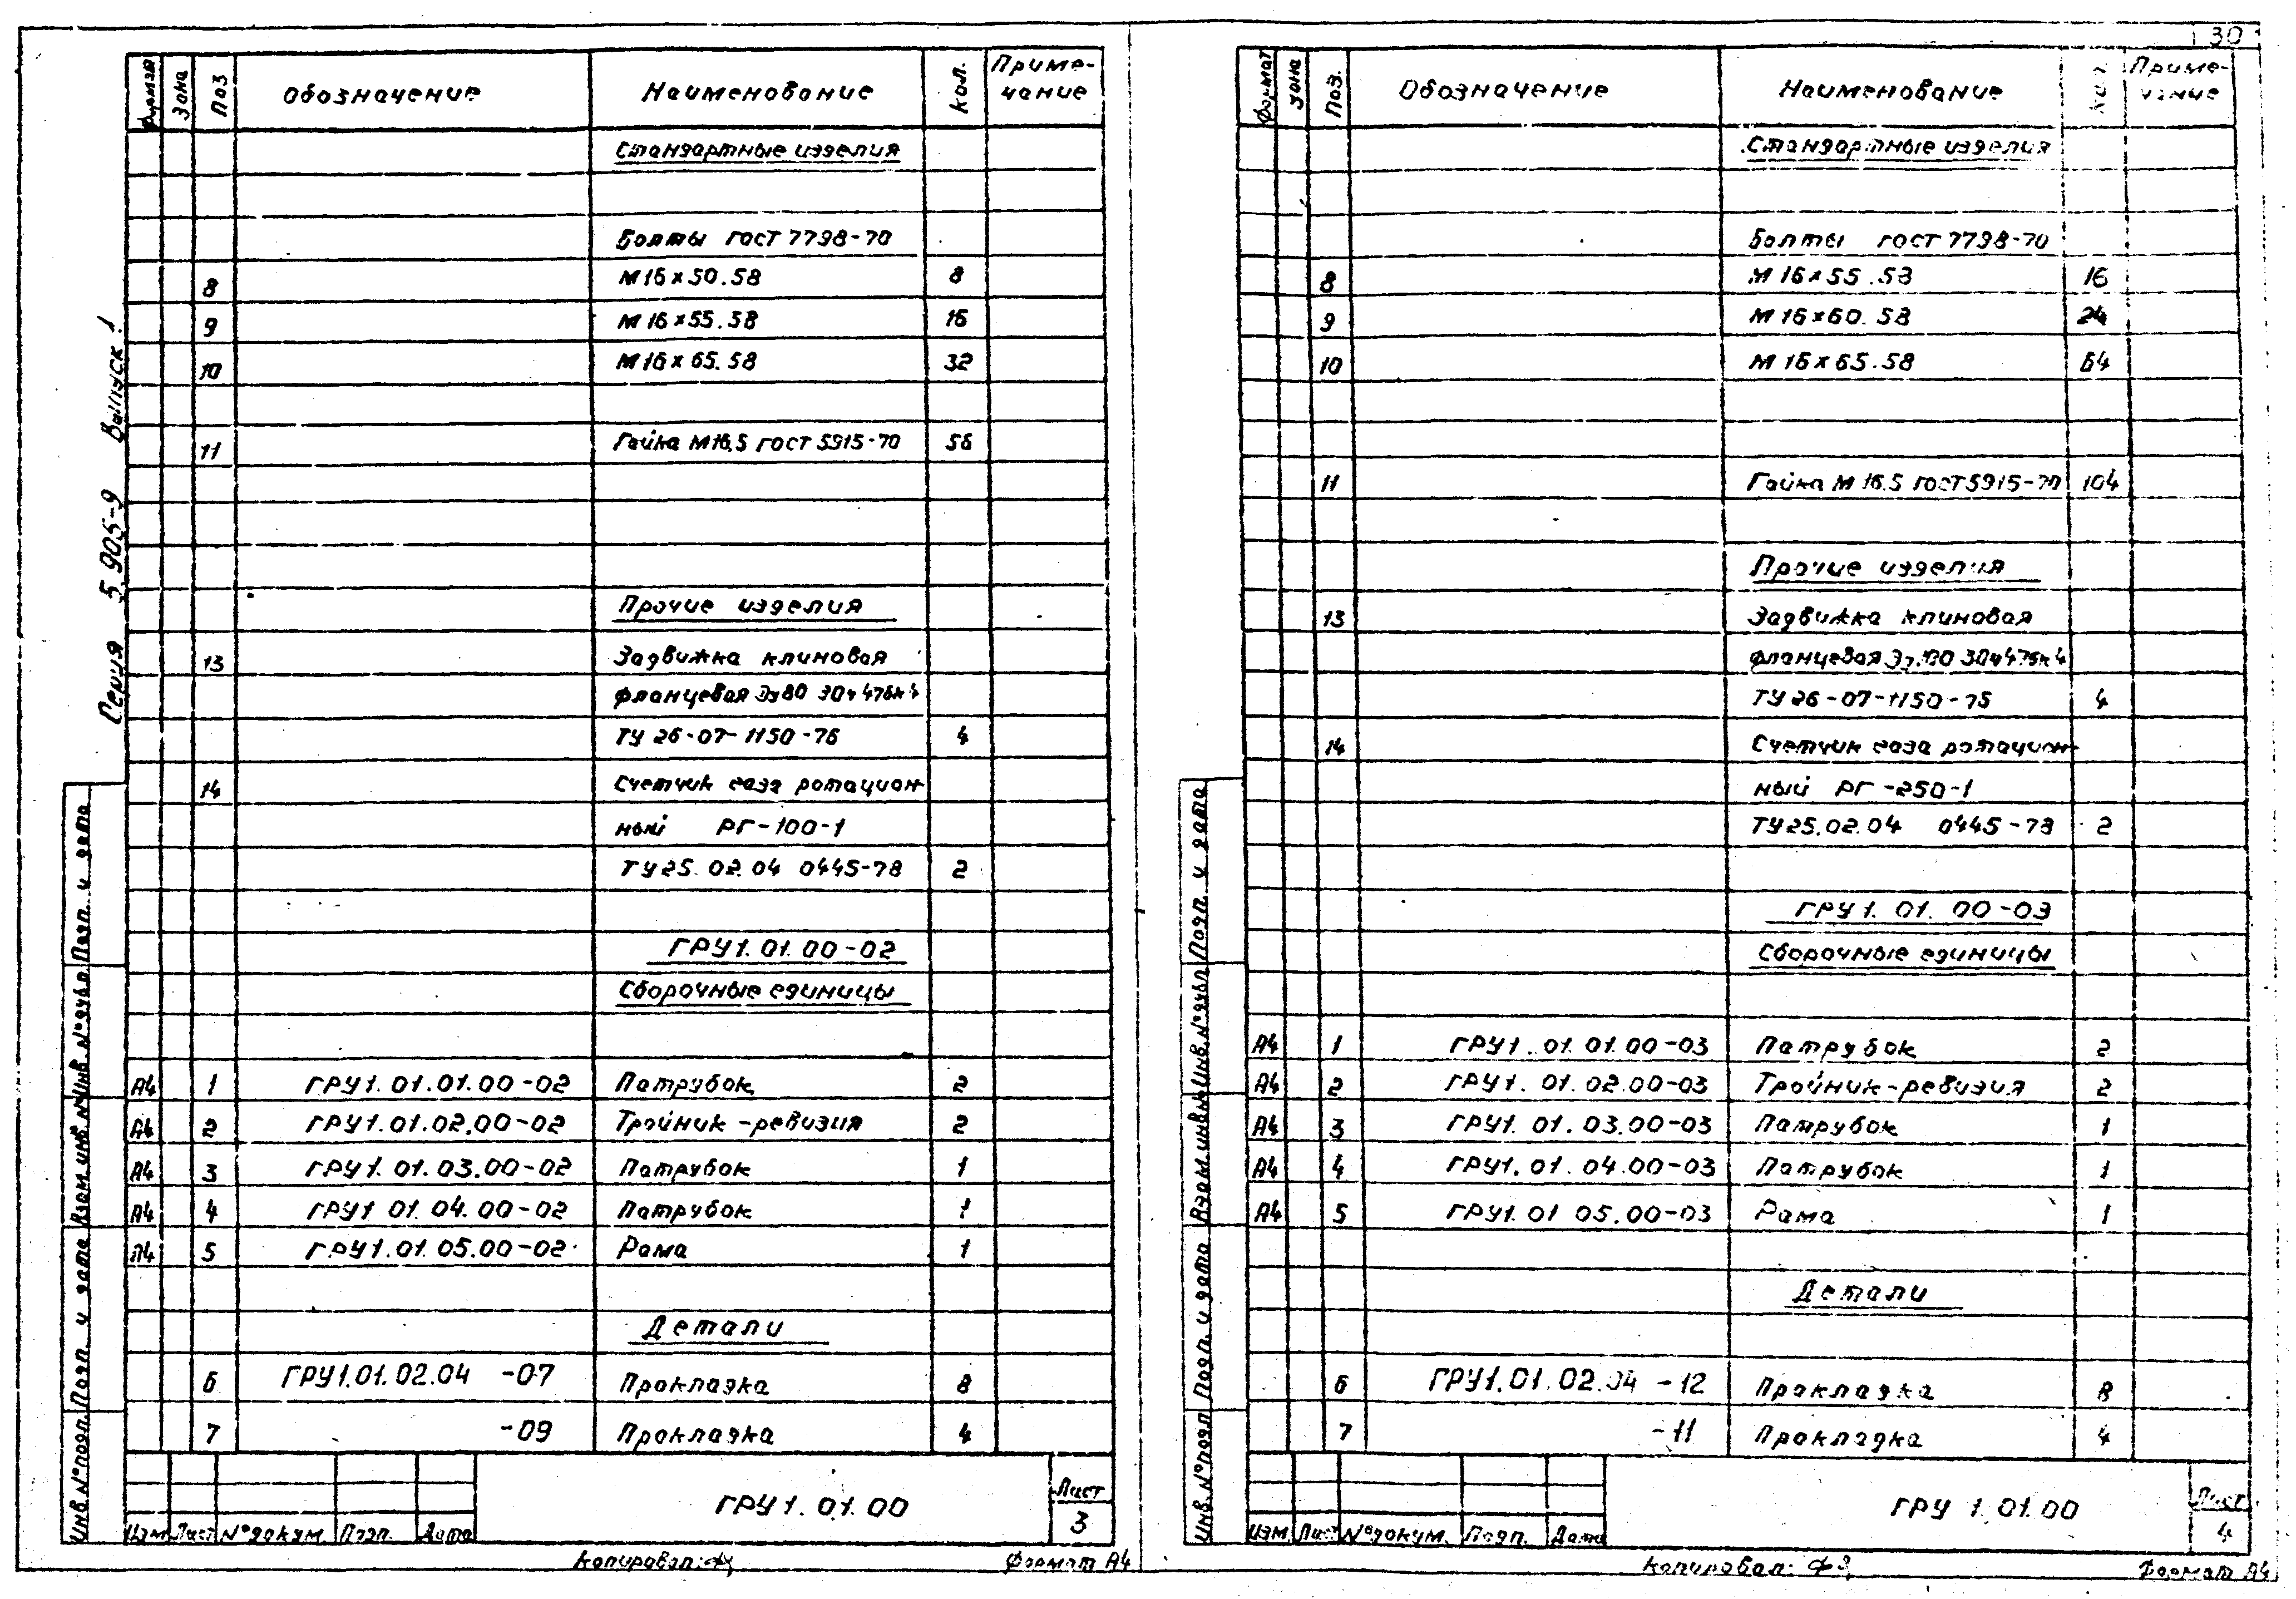 30
Серия 5.905-9 Выпуск 1
Формат Зона Поз Обозначение Наименование Кол. Приме-
чание
Стандартные изделия
Болты ГОСТ 7798-70
8 М16×50.58 8
9 М16×55.58 16
10 М16×65.58 32
11 Гайка М16.5 ГОСТ 5915-70 56
Прочие изделия
13 Задвижка клиновая
фланцевая Ду80 30ч47бк4
ТУ 26-07-1150-76 4
14 Счетчик газа ротацион-
ный РГ-100-1
ТУ25.02.04 0445-78 2
ГРУ1.01.00-02
Сборочные единицы
А4 1 ГРУ1.01.01.00-02 Патрубок 2
А4 2 ГРУ1.01.02.00-02 Тройник-ревизия 2
А4 3 ГРУ1.01.03.00-02 Патрубок 1
А4 4 ГРУ1.01.04.00-02 Патрубок 1
А4 5 ГРУ1.01.05.00-02 Рама 1
Детали
6 ГРУ1.01.02.04 -07 Прокладка 8
7 -09 Прокладка 4
Инв.№подл. Подп. и дата Взам.инв.№ Инв.№дубл. Подп. и дата
Изм Лист №докум. Подп. Дата
ГРУ1.01.00
Лист
3
Копировал:
Формат А4
Формат Зона Поз. Обозначение Наименование Кол Приме-
чание
Стандартные изделия
Болты ГОСТ 7798-70
8 М16×55.58 16
9 М16×60.58 24
10 М16×65.58 64
11 Гайка М16.5 ГОСТ 5915-70 104
Прочие изделия
13 Задвижка клиновая
фланцевая 30ч47бк4
ТУ26-07-1150-76 4
14 Счетчик газа ротацион-
ный РГ-250-1
ТУ25.02.04 0445-78 2
ГРУ1.01.00-03
Сборочные единицы
А4 1 ГРУ1.01.01.00-03 Патрубок 2
А4 2 ГРУ1.01.02.00-03 Тройник-ревизия 2
А4 3 ГРУ1.01.03.00-03 Патрубок 1
А4 4 ГРУ1.01.04.00-03 Патрубок 1
А4 5 ГРУ1.01 05.00-03 Рама 1
Детали
6 ГРУ1.01.02.04 -12 Прокладка 8
7 -11 Прокладка 4
Инв.№подл Подп. и дата Взам.инв.№ Инв.№дубл Подп. и дата
Изм Лист №докум. Подп. Дата
ГРУ 1.01.00
Лист
4
Копировал:
Формат А4